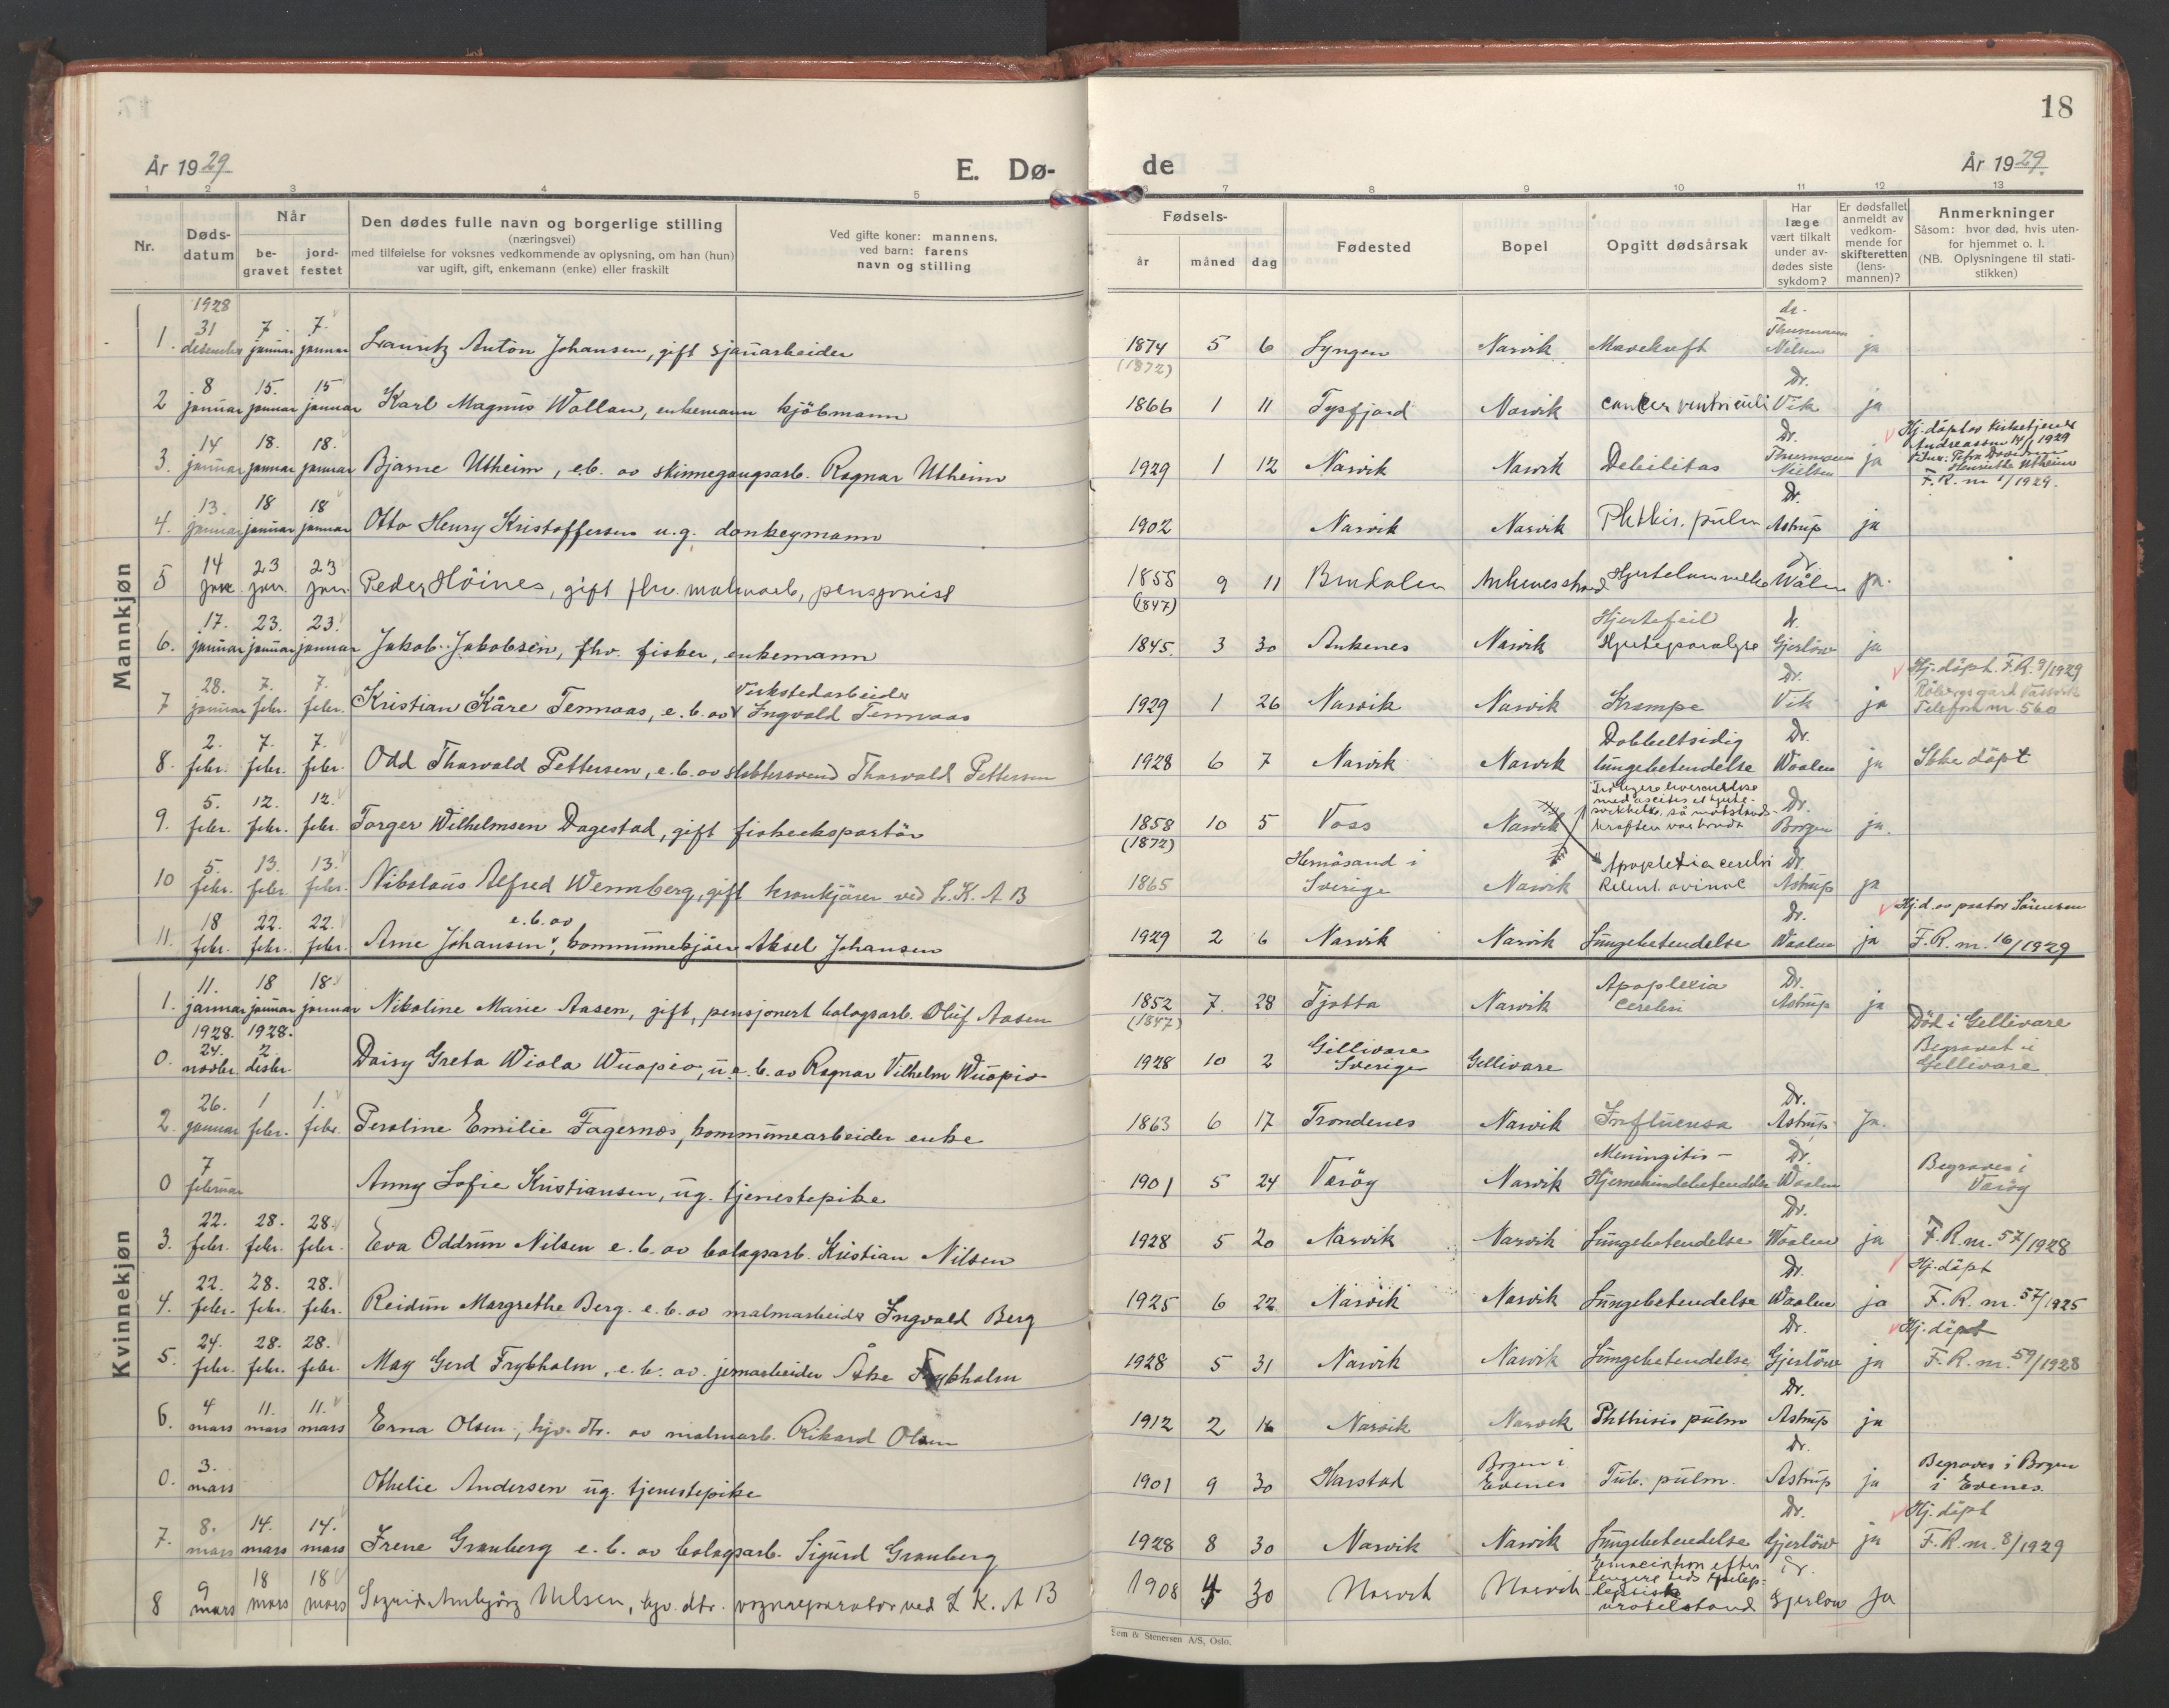 18
År 1929
E. Dø-
de
År 1929.
1 2 3 4 5 6 7 8 9 10 11 12 13
Nr.
Døds-
datum
Når
be-
gravet
jord-
festet
Den dødes fulle navn og borgerlige stilling
(næringsvei)
med tilføielse for voksnes vedkommende av oplysning, om han (hun)
var ugift, gift, enkemann (enke) eller fraskilt
Ved gifte koner: mannens,
ved barn: farens
navn og stilling
Fødsels-
år måned dag
Fødested
Bopel
Opgitt dødsårsak
Har
læge
vært tilkalt
under av-
dødes siste
sykdom?
Er dødsfallet
anmeldt av
vedkom-
mende for
skifteretten
(lens-
mannen)?
Anmerkninger
Såsom: hvor død, hvis uten-
for hjemmet o. l.
(NB. Oplysningene til stati-
stikken)
Mannkjøn
1928
31 7. 7. dr. Thurmann
1. desember januar januar Lauritz Anton Johansen, gift sjauarbeider 1874 5 6 Lyngen Narvik Mavekreft Nilsen ja
(1872)
8 15. 15 Dr.
2 januar januar januar Karl Magnus Wollan, enkemann kjöbmann 1866 1 11 Tysfjord Narvik cancer ventriculi Vik ja
14 18. 18. Dr. Hj. döpt av kirketjener
Andreassen 14/1 1929
3. januar januar januar Bjarne Utheim, e.b. av skinnegangsarb. Ragnar Utheim 1929 1 12 Narvik Narvik Debilitas Thurmann Nielsen ja
Henriette Utheim
F.R. nr 1/1929.
13. 18 18 Dr.
4. januar januar januar Otto Henry Kristoffersen u.g. donkeymann 1902 Narvik Narvik Phthis. pulm Astrup ja
14 23 23 dr.
5 jan. jan. jan. Peder Höines, gift fhv. malmarb, pensjonist 1858 9 11 Ankenesstrand Wålen ja.
(1847)
17. 23. 23. Hjertefeil dr.
6. januar januar januar Jakob Jakobsen, fhv. fisker, enkemann 1845. 3 30 Ankenes Narvik Hjerteparalyse Gjerlöw ja
28. 7. 7. Verkstedarbeider Dr. Hj. döpt. F.R. 9/1929
7 januar febr. febr. Kristian Kåre Tennaas, e.b. av Ingvald Tennaas 1929 1 26 Narvik Narvik Krampe Vik ja
Telefon nr. 560
2. 7. 7. Dobbeltsidig Dr.
8. febr. febr. febr. Odd Thorvald Pettersen, e.b. av slaktersvend Thorvald Pettersen 1928 6 7 Narvik Narvik lungebetendelse Waalen ja Ikke döpt
5. 12. 12. Dr.
9. febr. febr. febr. Torger Wilhelmsen Dagestad, gift fiskeeksportör 1858 10 5 Voss Narvik Borgen ja.
(1872)
5. 13. 13. Hernösand i Apoplexia cerebri Dr.
10 febr. febr. febr. Nikolaus Alfred Wennberg, gift krankjörer ved L.K.A.B 1865 Sverige Narvik Astrup ja
18 22. 22. e.b. av Dr. Hj. d. av pastor Sörensen
11. febr. febr. febr. Arne Johansen, kommunekjörer Aksel Johansen 1929 2 6 Narvik Narvik Lungebetendelse Waalen ja F.R. nr. 16/1929
Kvinnekjøn
11. 18 18. Apoplexia Dr.
1. januar januar januar Nikoline Marie Aasen, gift, pensjonert bolagsarb. Oluf Aasen 1852 7. 28 Tjøtta Narvik Cerebri Astrup ja
(1847)
1928. 1928. Död i Gellivare
24. 2. Gillivare Begravet i
0. novbr. desbr. Daisy Greta Wiola Wuopio, u.e.b. av Ragnar Vilhelm Wuopio 1928 10 2 Sverige Gellivare Gellivare.
26. 1 1. Dr.
2. januar febr. febr. Peroline Emilie Fagernes, kommunearbeider enke 1863 6 17 Trondenes Narvik Influensa Astrup ja.
7 Meningitis - Dr. Begraves i
0 februar Anny Sofie Kristiansen, ug. tjenestepike 1901 5 24 Varöy Narvik Hjernehindebetendelse Waalen Varöy
22. 28. 28. Dr.
3. febr. febr. febr. Eva Oddrun Nilsen e.b. av bolagsarb. Kristian Nilsen 1928 5 20 Narvik Narvik Lungebetendelse Waalen ja F.R. nr. 57/1928
22. 28. 28. Dr. Hj. döpt
4. febr. febr. febr. Reidun Margrethe Berg. e.b. av malmarbeider Ingvald Berg 1925 6 22 Narvik Narvik Lungebetendelse Waalen ja F.R. nr. 57/1925
24. 28. 28. Dr. Hj. döpt
5. febr. febr. febr. May Gerd Frykholm, e.b. av. jernarbeider Åke Frykholm 1928 5 31 Narvik Narvik Lungebetendelse Gjerlöw ja F.R. nr. 59/1928
4 11. 11. Dr.
6. mars mars mars Erna Olsen, hjv. dtr. av malmarb. Rikard Olsen 1912 2 16 Narvik Narvik Phthisis pulm Astrup ja
3. Bogen i Dr. Begraves i Bogen
0. mars Othelie Andersen ug. tjenestepike 1901 9 30 Harstad Evenes Tub. pulm. Astrup ja i Evenes.
8. 14. 14. Dr. Hj. döpt
7. mars mars mars Irene Granberg e.b. av bolagsarb. Sigurd Granberg 1928 8 30 Narvik Narvik Lungebetendelse Gjerlöw ja F.R. nr. 8/1929
9 18 18 dr.
8 mars mars mars Sigrid Anbjörg Nilsen, hjv. dtr. vognreparatør ved L K. A B 1908 4 30 Narvik Narvik Gjerlöw ja
Sem & Stenersen A/S, Oslo.